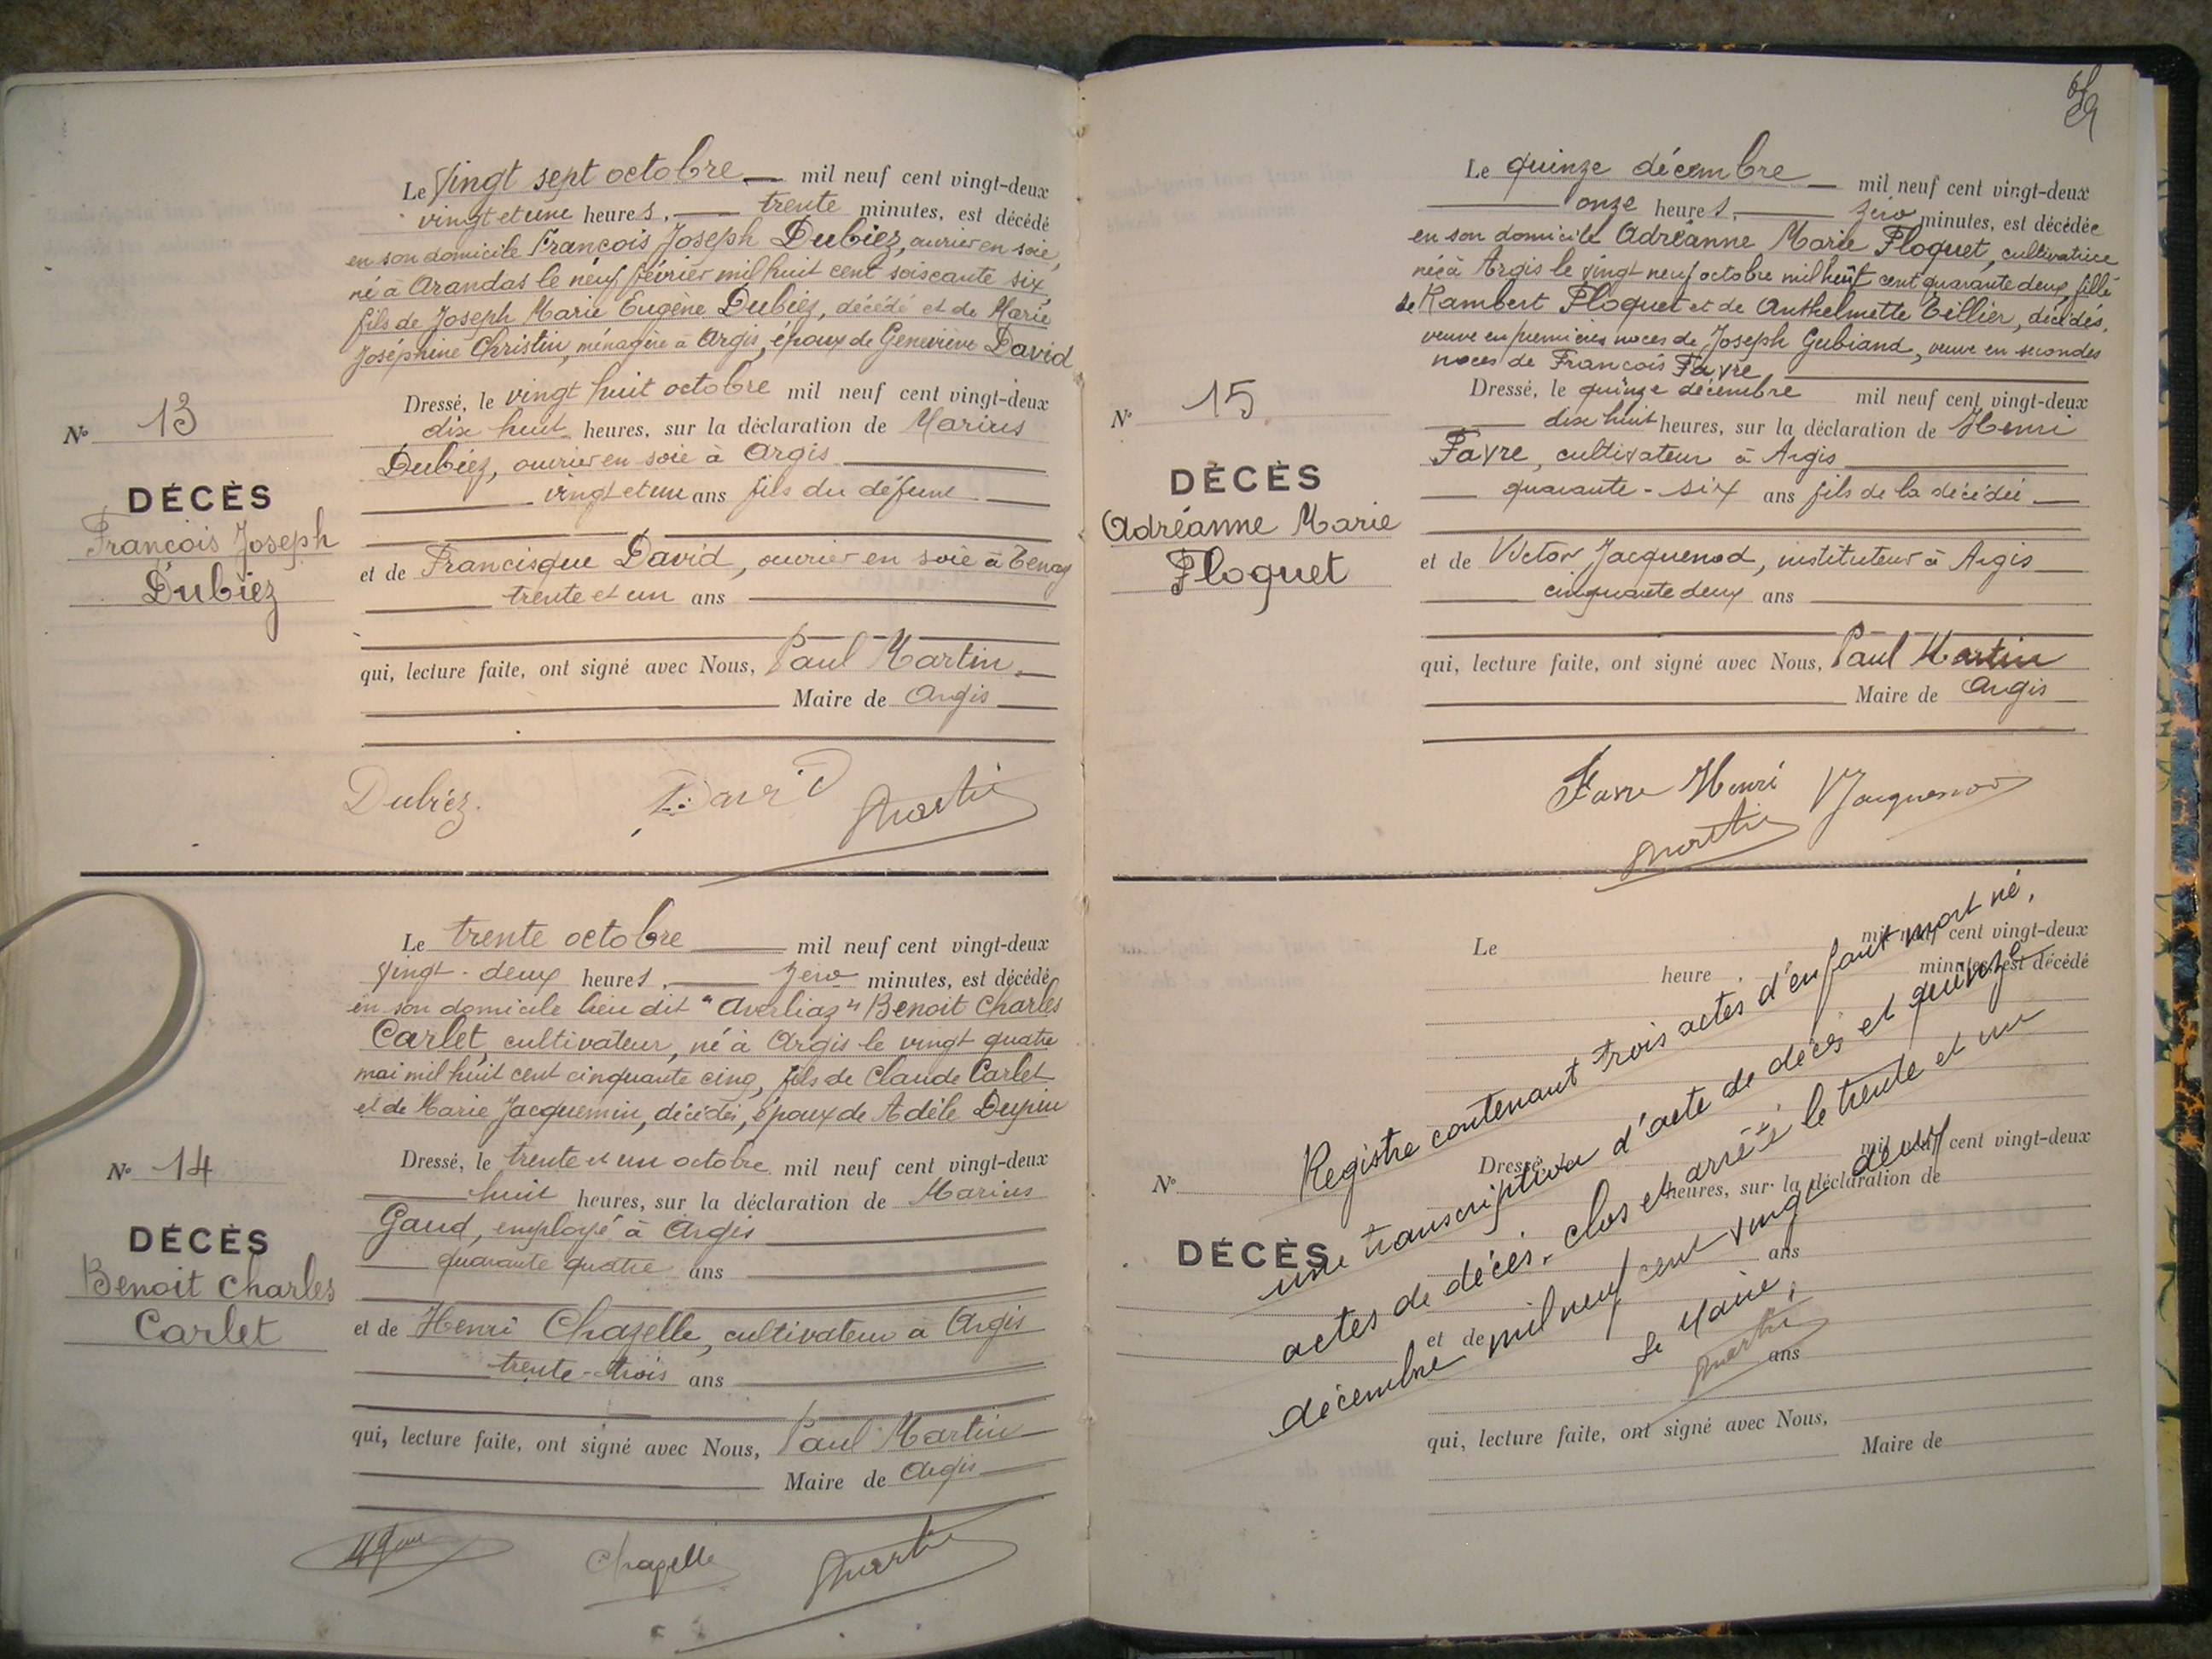 Le Vingt sept octobre mil neuf cent vingt-deux
vingt et une heures, trente minutes, est décédé
en son domicile François Joseph Dubiez, ouvrier en soie,
né à Arandas le neuf février mil huit cent soiscante six,
fils de Joseph Marie Eugène Dubiez, décédé et de Marie
Joséphine Christin, ménagère à Argis, époux de Geneviève David
Dressé, le vingt huit octobre mil neuf cent vingt-deux
dix huit heures, sur la déclaration de Marius
Dubiez, ouvrier en soie à Argis
vingt et un ans fils du défunt
et de Francisque David, ouvrier en soie à Tenay
trente et un ans
qui, lecture faite, ont signé avec Nous, Paul Martin
Maire de Argis
N° 13
DÉCÈS
François Joseph
Dubiez
Dubiez. David Martin
Le trente octobre mil neuf cent vingt-deux
vingt-deux heures, zéro minutes, est décédé
en son domicile lieu dit "Averliaz" Benoit Charles
Carlet, cultivateur, né à Argis le vingt quatre
mai mil huit cent cinquante cinq, fils de Claude Carlet
et de Marie Jacquemin, décédés, époux de Adèle Dupin
Dressé, le trente et un octobre mil neuf cent vingt-deux
huit heures, sur la déclaration de Marius
Gaud, employé à Argis
quarante quatre ans
et de Henri Chazelle, cultivateur à Argis
trente-trois ans
qui, lecture faite, ont signé avec Nous, Paul Martin
Maire de Argis
N° 14
DÉCÈS
Benoit Charles
Carlet
Chazelle Martin
Le quinze décembre mil neuf cent vingt-deux
onze heures, zéro minutes, est décédée
en son domicile Adréanne Marie Floquet, cultivatrice
née à Argis le vingt neuf octobre mil huit cent quarante deux, fille
de Rambert Floquet et de Anthelmette Tillier, décédés,
veuve en premières noces de Joseph Gubiand, veuve en secondes
noces de François Favre
Dressé, le quinze décembre mil neuf cent vingt-deux
dix huit heures, sur la déclaration de Henri
Favre, cultivateur à Argis
quarante-six ans fils de la décédée
et de Victor Jacquenod, instituteur à Argis
cinquante deux ans
qui, lecture faite, ont signé avec Nous, Paul Martin
Maire de Argis
N° 15
DÉCÈS
Adréanne Marie
Floquet
Favre Henri VJacquenod
Martin
Le mil neuf cent vingt-deux
heure minutes, est décédé
Dressé, mil neuf cent vingt-deux
heures, sur la déclaration de
ans
et de
ans
qui, lecture faite, ont signé avec Nous,
Maire de
N°
DÉCÈS
Registre contenant trois actes d'enfant mort né,
une transcription d'acte de décès et quinze
actes de décès, clos et arrêté le trente et un
décembre mil neuf cent vingt deux
Le Maire,
Martin